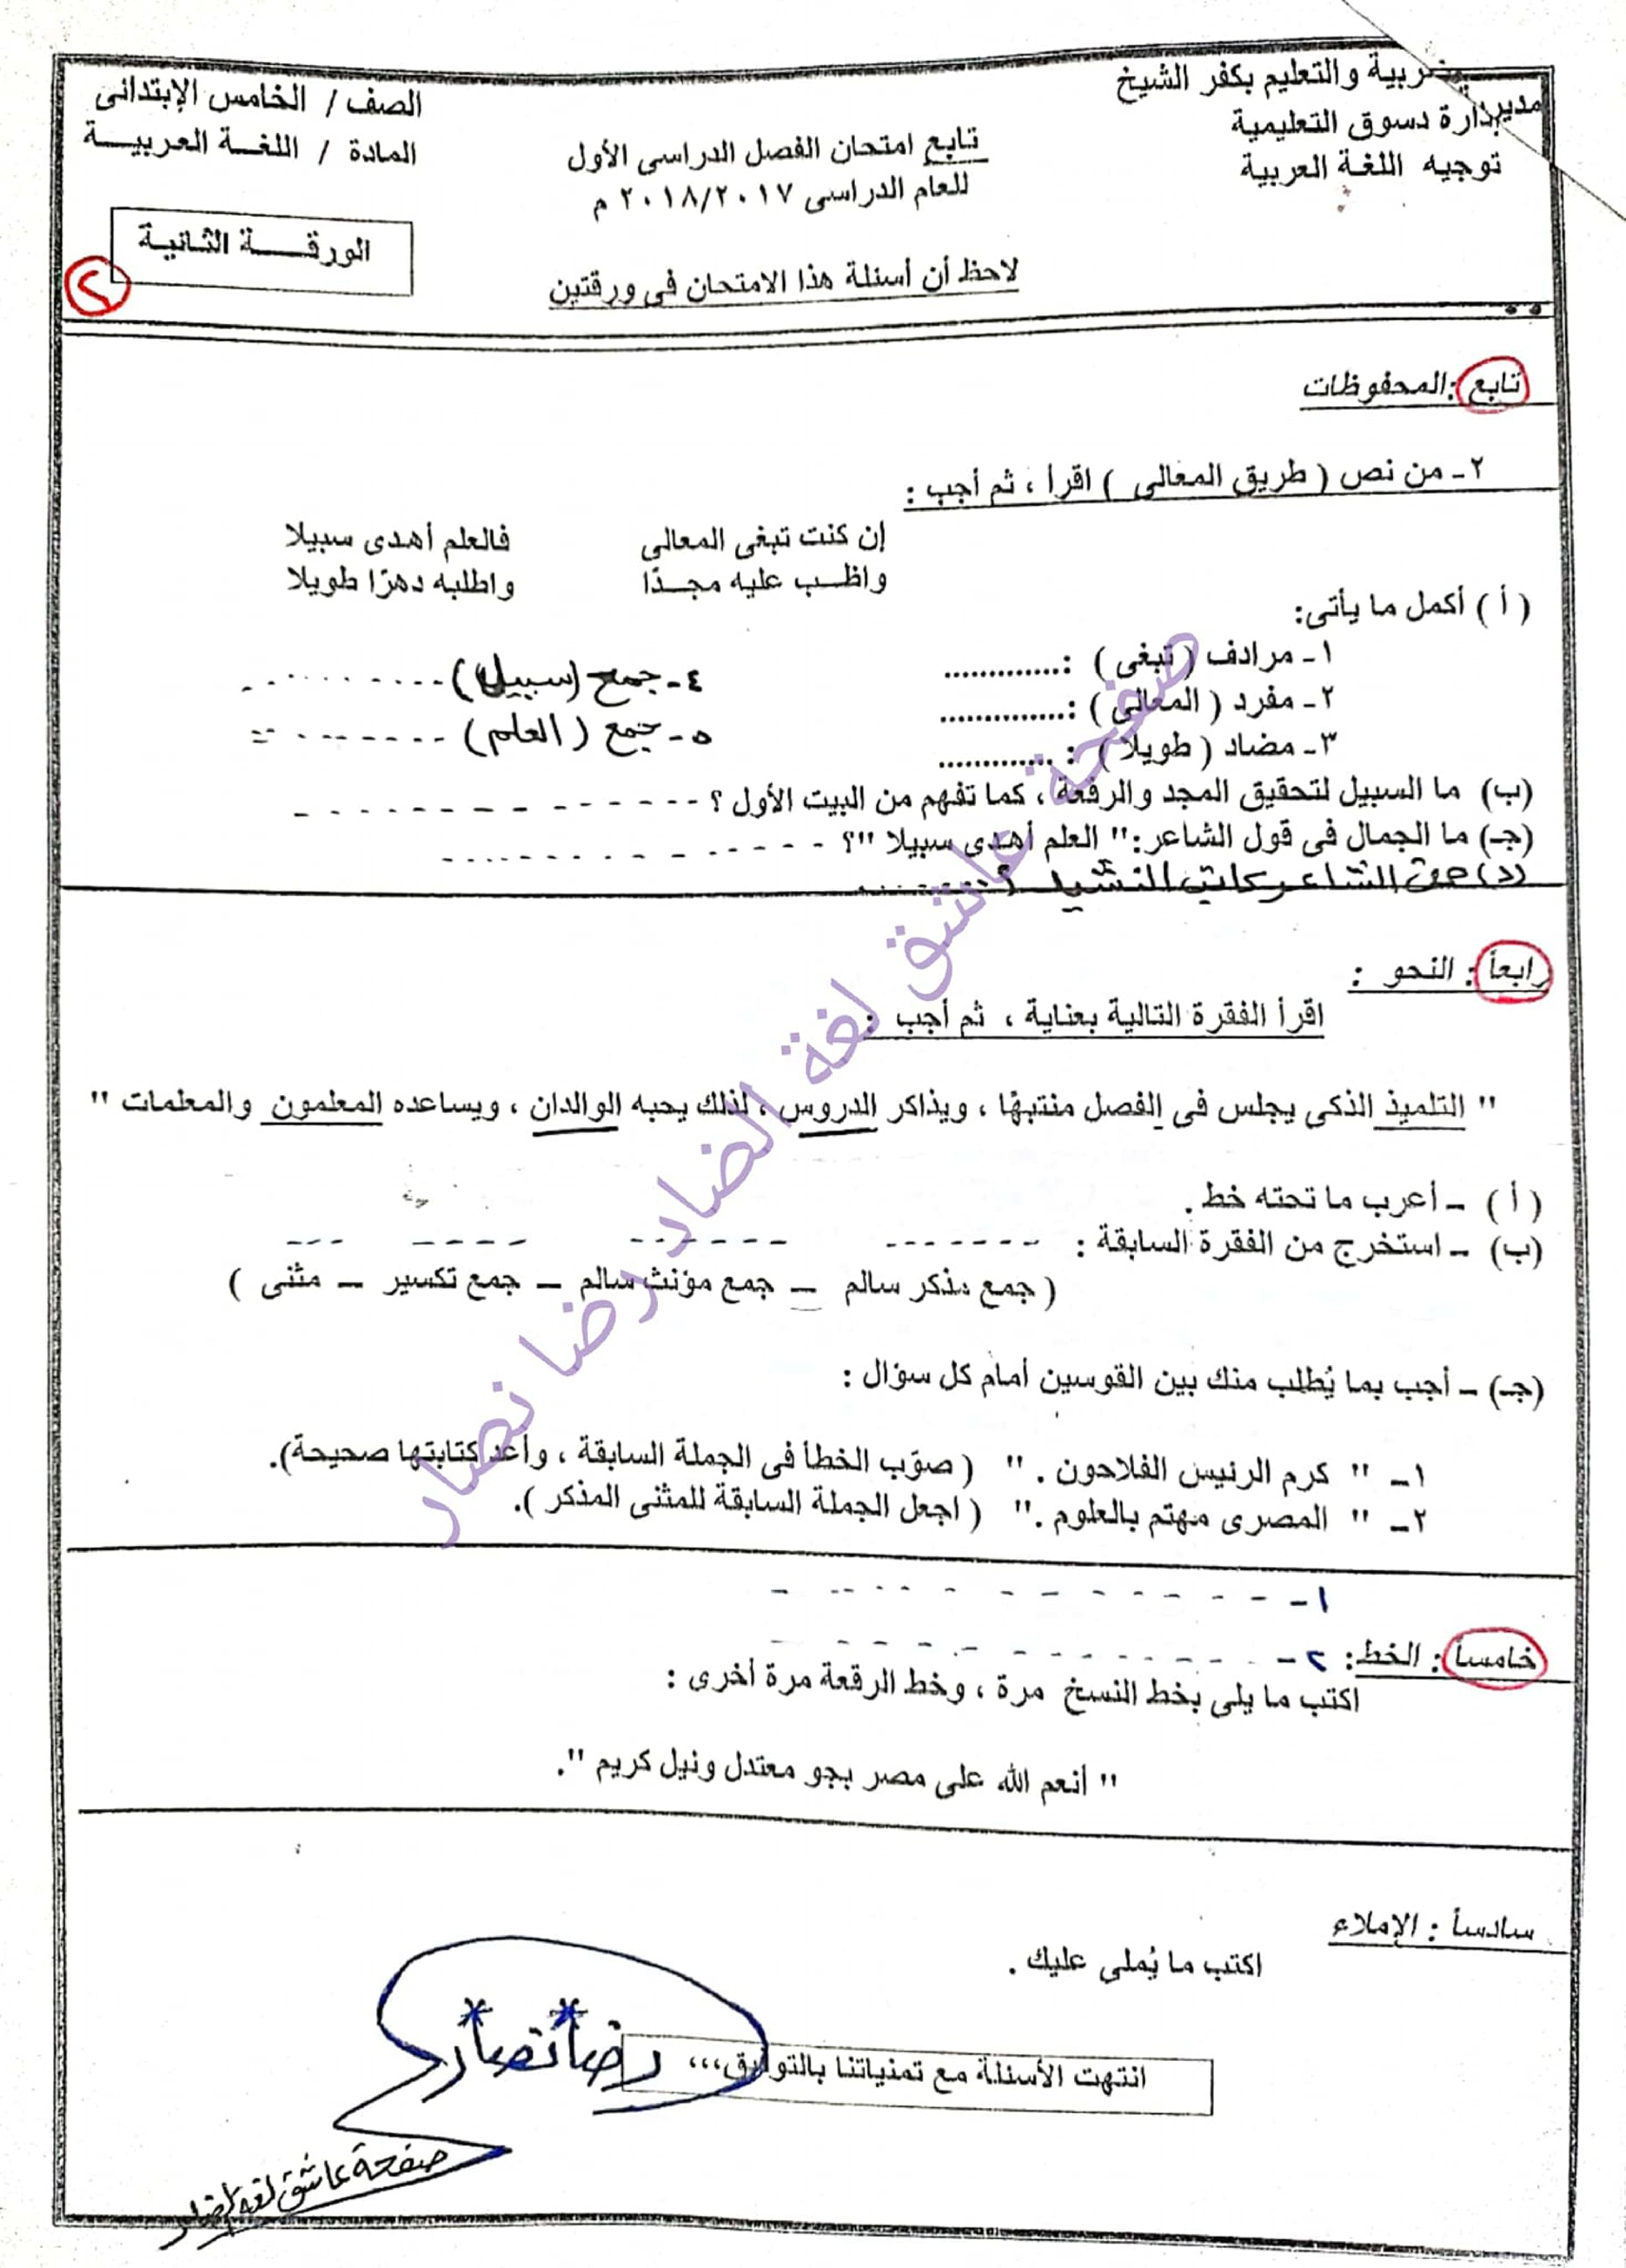 مديرية التربية والتعليم بكفر الشيخ
إدارة دسوق التعليمية
توجيه اللغة العربية
تابع امتحان الفصل الدراسى الأول
للعام الدراسى ٢٠١٨/٢٠١٧ م
لاحظ أن أسئلة هذا الامتحان فى ورقتين
الصف / الخامس الإبتدائى
المادة / اللغة العربية
الورقة الثانية
٢
تابع : المحفوظات
٢- من نص ( طريق المعالى ) اقرأ ، ثم أجب :
إن كنت تبغى المعالى فالعلم أهدى سبيلا
واظب عليه مجدًا واطلبه دهرًا طويلا
( أ ) أكمل ما يأتى:
١- مرادف ( تبغى ) : ............. ٤- جمع (سبيل) ..........
٢- مفرد ( المعالى ) : .............. ٥- جمع ( العلم ) ..........
٣- مضاد ( طويلا ) : .............
(ب) ما السبيل لتحقيق المجد والرفعة ، كما تفهم من البيت الأول ؟ - - - - - - - - - -
(جـ) ما الجمال فى قول الشاعر: " العلم أهدى سبيلا "؟ - - - - - - - - - -
(د) من الشاعر كاتب النشيد ؟ ........
رابعاً : النحو :
اقرأ الفقرة التالية بعناية ، ثم أجب :
" التلميذ الذكى يجلس فى الفصل منتبهًا ، ويذاكر الدروس ، لذلك يحبه الوالدان ، ويساعده المعلمون والمعلمات "
( أ ) - أعرب ما تحته خط .
(ب) - استخرج من الفقرة السابقة : - - - - - - - - - - - - - - - - - - - -
( جمع مذكر سالم – جمع مؤنث سالم – جمع تكسير – مثنى )
(جـ) - أجب بما يُطلب منك بين القوسين أمام كل سؤال :
١- " كرم الرئيس الفلاحون . " ( صوّب الخطأ فى الجملة السابقة ، وأعد كتابتها صحيحة).
٢- " المصرى مهتم بالعلوم ." ( اجعل الجملة السابقة للمثنى المذكر ).
١- - - - - - - - - - - -
خامساً : الخط: ٢- - - - - - - - - - - -
اكتب ما يلى بخط النسخ مرة ، وخط الرقعة مرة أخرى :
" أنعم الله على مصر بجو معتدل ونيل كريم ".
سادساً : الإملاء
اكتب ما يُملى عليك .
انتهت الأسئلة مع تمنياتنا بالتوفيق،،،
رضا نصار
صفحة عاشق لغة الضاد
صفحة عاشق لغة الضاد رضا نصار